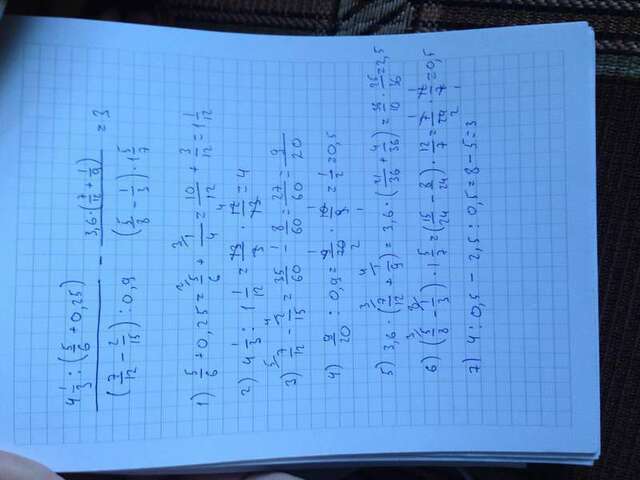 4 1/3 : (5/6 + 0,25) / (7/12 - 2/15) : 0,9 - 3,6 · (7/12 + 1/9) / (5/8 - 1/3) · 1 5/7 = 3
1) 5/6 + 0,25 = 5/6 + 1/4 = 10/12 + 3/12 = 1 1/12
2) 4 1/3 : 1 1/12 = 13/3 · 12/13 = 4
3) 7/12 - 2/15 = 35/60 - 8/60 = 27/60 = 9/20
4) 9/20 : 0,9 = 9/20 · 10/9 = 1/2 = 0,5
5) 3,6 · (7/12 + 1/9) = 3,6 · (21/36 + 4/36) = 36/10 · 25/36 = 2,5
6) (5/8 - 1/3) · 1 5/7 = (15/24 - 8/24) · 12/7 = 7/24 · 12/7 = 0,5
7) 4 : 0,5 - 2,5 : 0,5 = 8 - 5 = 3